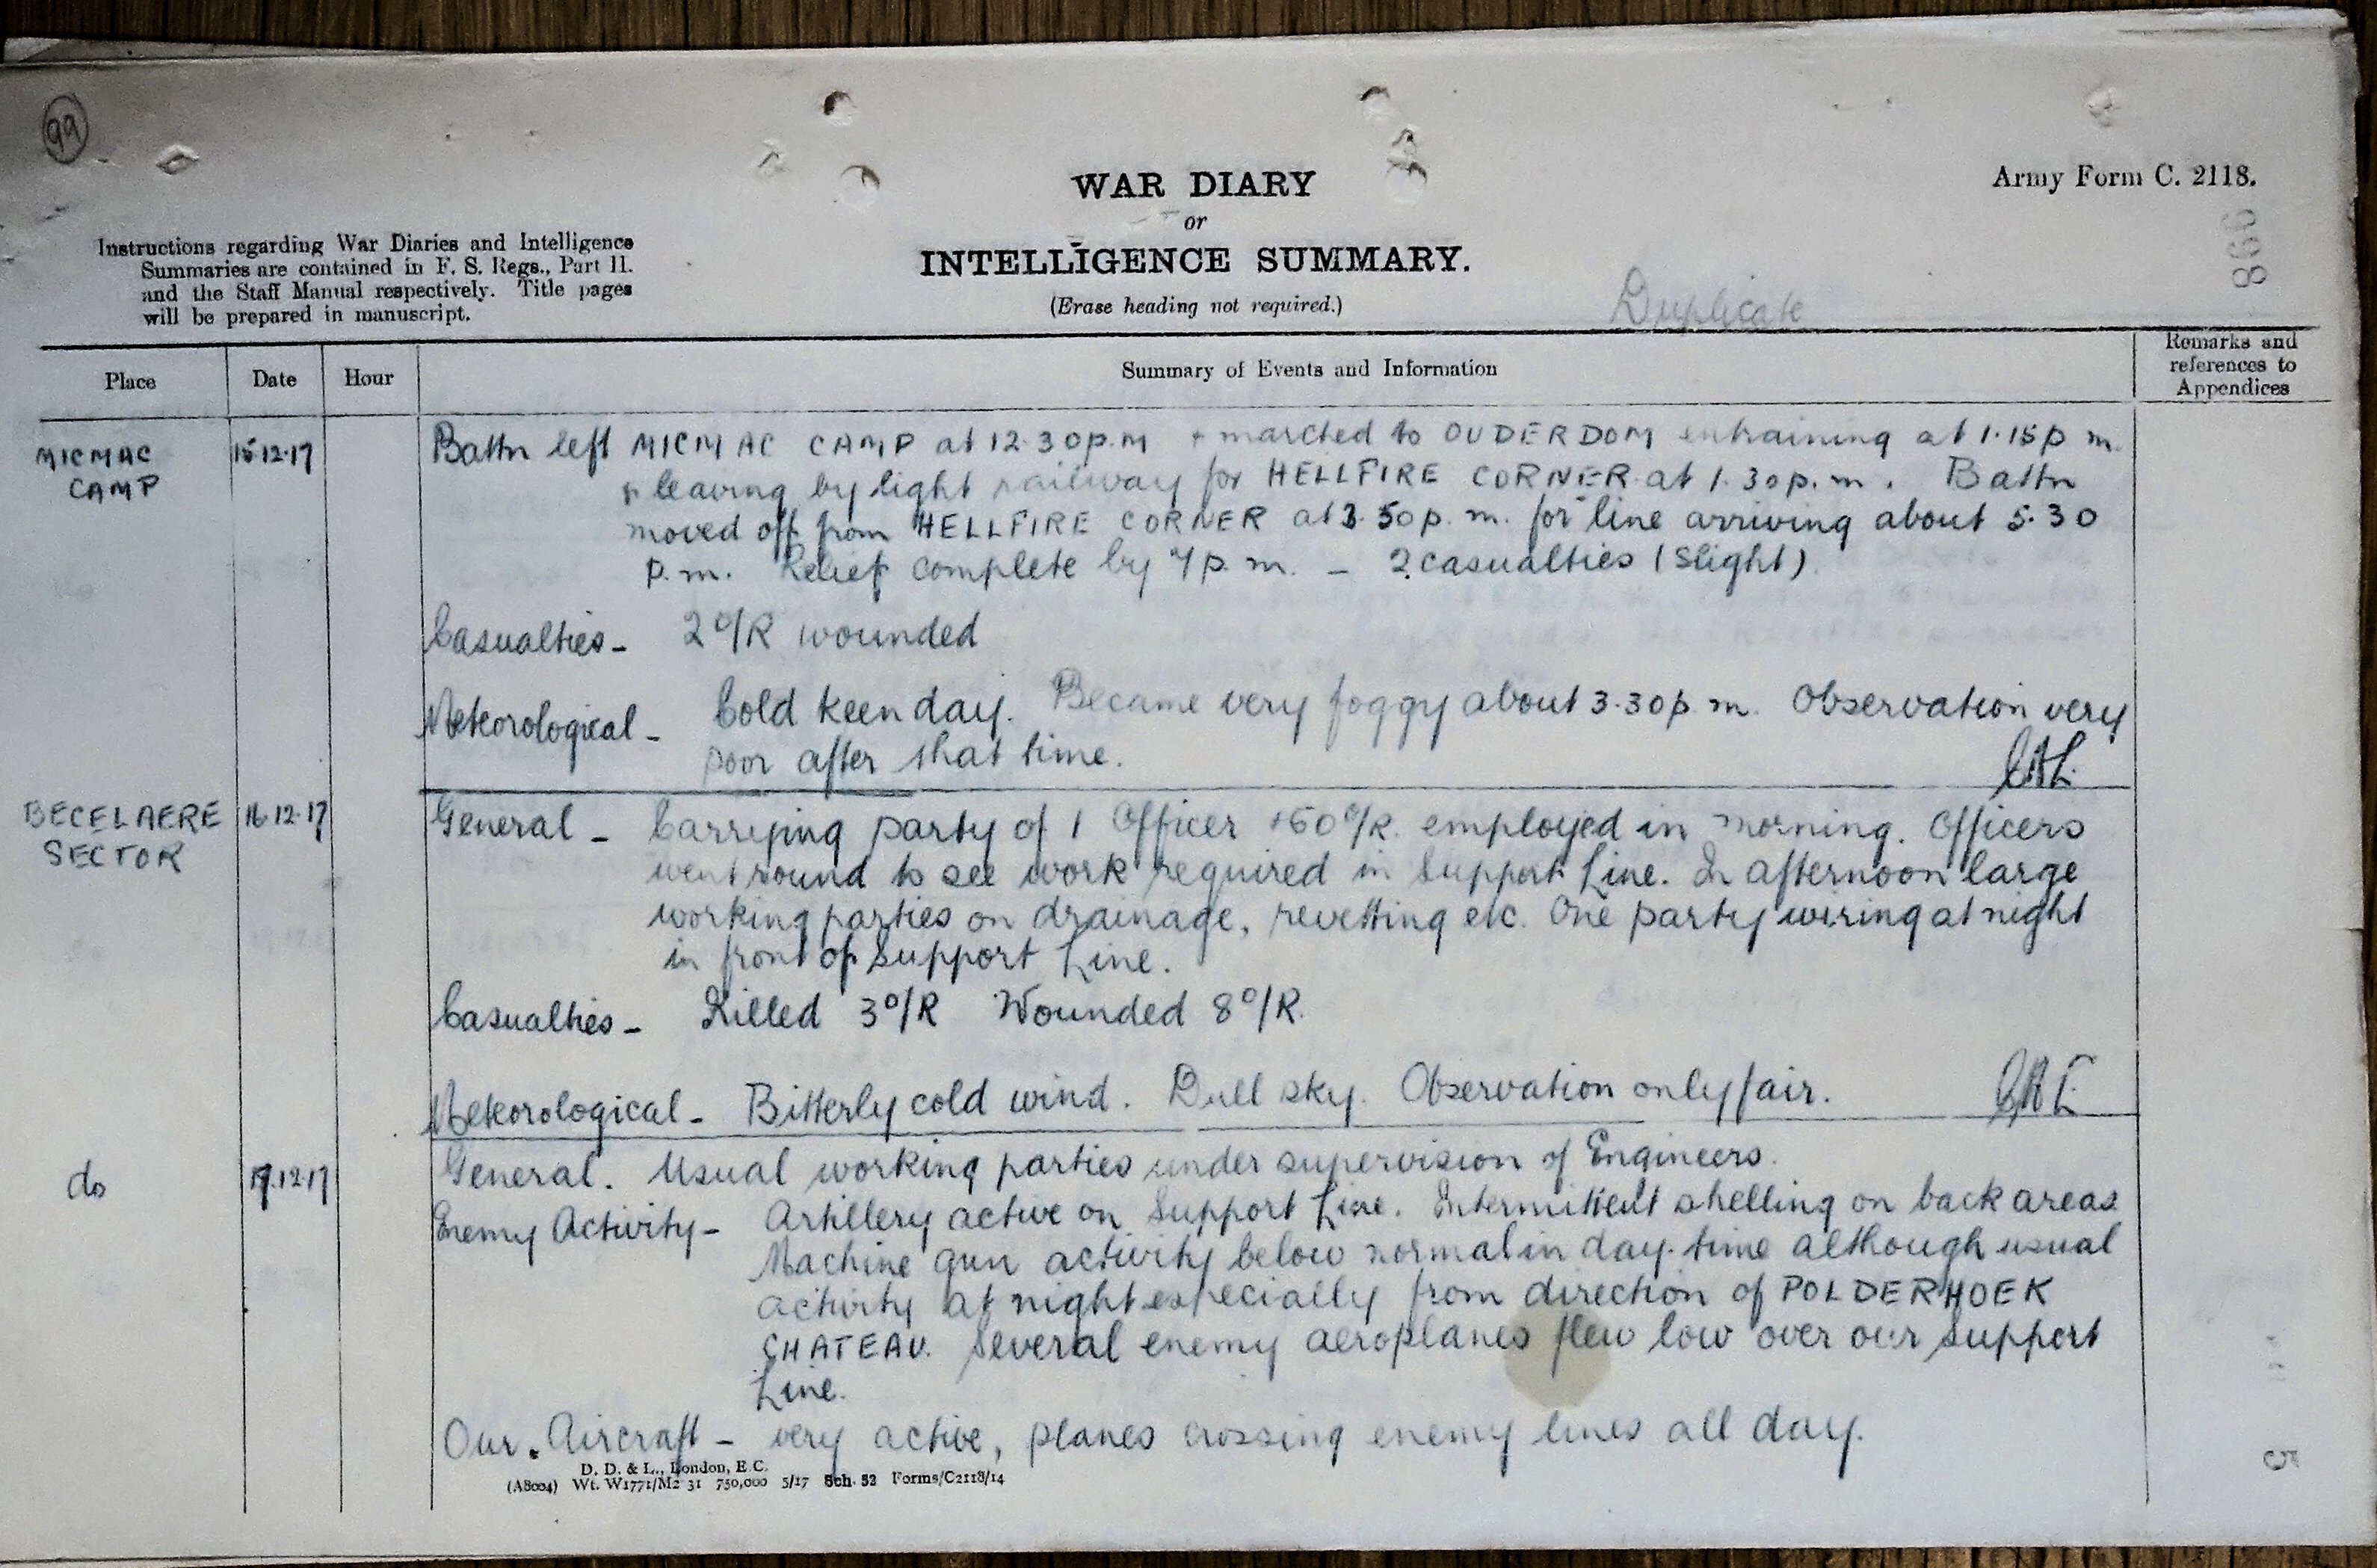 99
WAR DIARY
or
INTELLIGENCE SUMMARY.
(Erase heading not required.)
Army Form C. 2118.
998
Instructions regarding War Diaries and Intelligence
Summaries are contained in F. S. Regs., Part II.
and the Staff Manual respectively. Title pages
will be prepared in manuscript.
Duplicate
Place Date Hour Summary of Events and Information Remarks and
references to
Appendices
MICMAC
CAMP
15.12.17
Battn left MICMAC CAMP at 12.30p.m + marched to OUDERDOM entraining at 1.15p m.
+ leaving by light railway for HELLFIRE CORNER at 1.30p.m. Battn
moved off from HELLFIRE CORNER at 3.50p.m. for line arriving about 5.30
p.m. Relief complete by 7p.m. - 2 casualties (slight).
Casualties - 2 O/R wounded
Meteorological - Cold keen day. Became very foggy about 3.30p.m. Observation very
poor after that time.
BECELAERE
SECTOR
16.12.17
General - Carrying party of 1 Officer +60 O/R. employed in morning. Officers
went round to see work required in Support Line. In afternoon large
working parties on drainage, revetting etc. One party wiring at night
in front of Support Line.
Casualties - Killed 3 O/R Wounded 8 O/R.
Meteorological - Bitterly cold wind. Dull sky. Observation only fair.
do 17.12.17
General. Usual working parties under supervision of Engineers.
Enemy Activity - Artillery active on Support Line. Intermittent shelling on back areas
Machine gun activity below normal in day-time although usual
activity at night especially from direction of POLDERHOEK
CHATEAU. Several enemy aeroplanes flew low over our Support
Line.
Our Aircraft - very active, planes crossing enemy lines all day.
D. D. & L., London, E.C.
(A8004) Wt. W1771/M2 31 750,000 5/17 Sch. 52 Forms/C2118/14